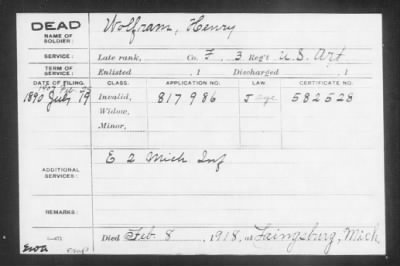 DEAD
NAME OF SOLDIER: Wolfram, Henry
SERVICE: Late rank, Co. F, 3 Reg't U.S. Art
TERM OF SERVICE: Enlisted , 1 Discharged , 1
DATE OF FILING. CLASS. APPLICATION NO. LAW CERTIFICATE NO.
1890 July 19 Invalid, 817986 582528
Widow,
Minor,
ADDITIONAL SERVICES: E 2 Mich Inf
REMARKS:
Died Feb. 8, 1918, at Laingsburg, Mich